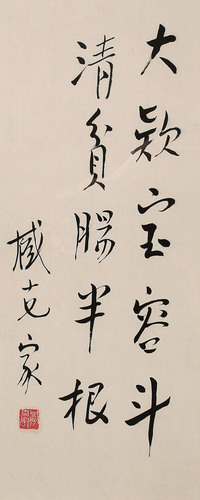 大欵宝容斗
清貧腸半根
臧克家